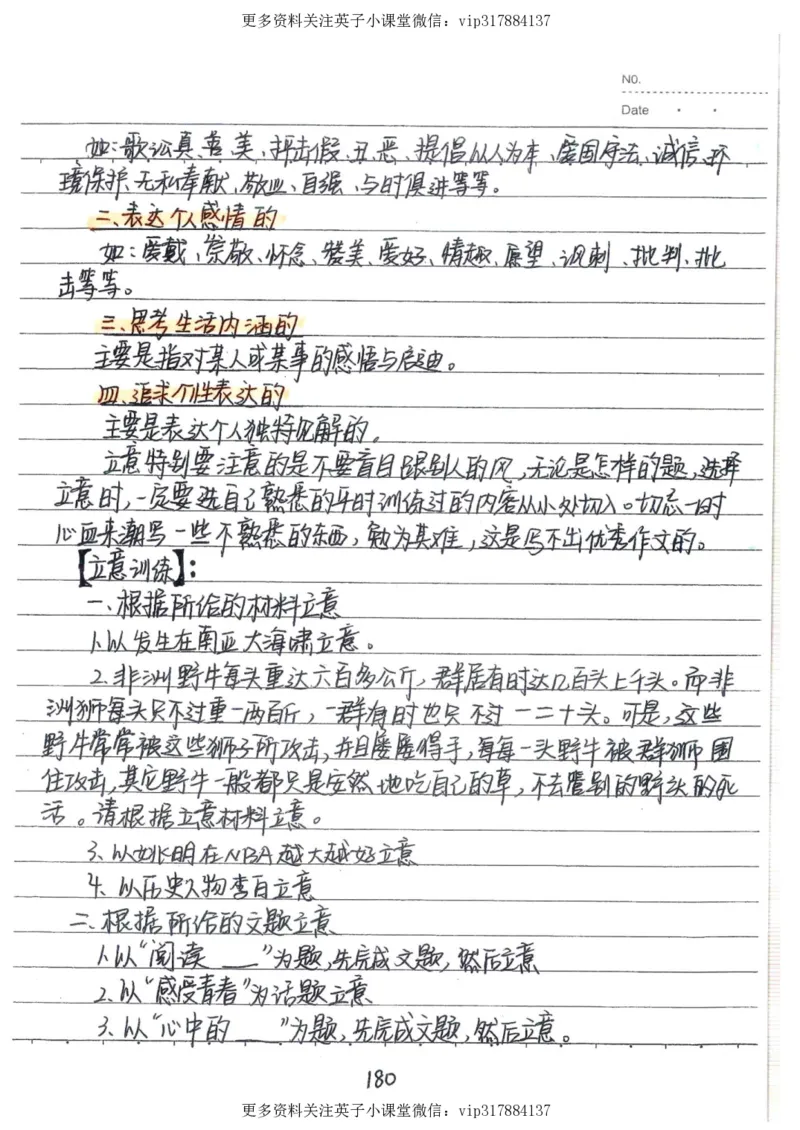 更多资料关注英子小课堂微信：vip317884137
NO.
Date
如：歌讼真、善、美、抨击假、丑、恶、提倡以人为本、爱国守法、诚信、环
境保护、无私奉献、敬业、自强、与时俱进等等。
二、表达个人感情的
如：爱戴、崇敬、怀念、赞美、爱好、情趣、愿望、讽刺、批判、抨
击等等。
三、思考生活内涵的
主要是指对某人或某事的感悟与启迪。
四、追求个性表达的
主要是表达个人独特见解的。
立意特别要注意的是不要盲目跟别人的风，无论是怎样的题，选择
立意时，一定要选自己熟悉的平时训练过的内容从小处切入。切忌一时
心血来潮写一些不熟悉的东西，勉为其难，这是写不出优秀作文的。
【立意训练】：
一、根据所给的材料立意
1.以发生在南亚大海啸立意。
2.非洲野牛每头重达六百多公斤，群居有时达几百头上千头。而非
洲狮每头只不过重一两百斤，一群有时也只不过一二十头。可是，这些
野牛常常被这些狮子所攻击，并且屡屡得手，每每一头野牛被群狮围
住攻击，其它野牛一般都只是安然地吃自己的草，不去管别的野头的死
活。请根据立意材料立意。
3.以姚明在NBA越大越好立意
4.以历史人物李白立意
二、根据所给的文题立意
1.以“阅读＿＿”为题，先完成文题，然后立意
2.以“感受青春”为话题立意
3.以“心中的＿＿”为题，先完成文题，然后立意。
180
更多资料关注英子小课堂微信：vip317884137